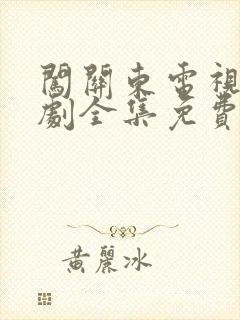 闖關東電視
劇全集免費
黃麗冰